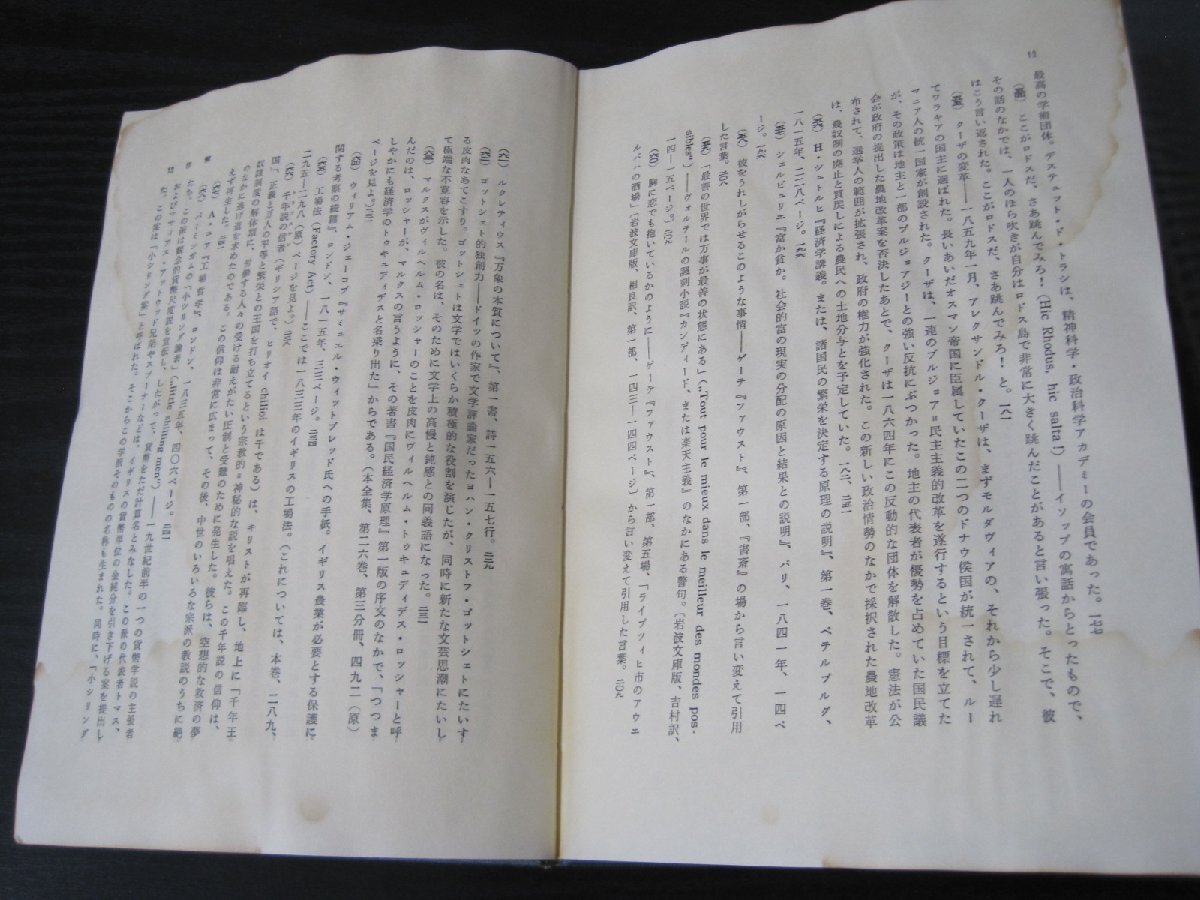 最高の学術団体。デステュット・ド・トラシは、精神科学・政治科学アカデミーの会員であった。一七七
ここがロドスだ、さあ跳んでみろ！(Hic Rhodus, hic salta!)——イソップの寓話からとったもので、
その話のなかでは、一人のほら吹きが自分はロドス島で非常に大きく跳んだことがあると言い張った。そこで、彼
はこう言い返された。ここがロドスだ、さあ跳んでみろ！ と。一八一
クーザの変革——一八五九年一月、アレクサンドル・クーザは、まずモルダヴィアの、それから少し遅れ
てワラキアの国主に選ばれた。長いあいだオスマン帝国に臣属していたこの二つのドナウ侯国が統一されて、ルー
マニア人の統一国家が創設された。クーザは、一連のブルジョア民主主義的改革を遂行するという目標を立てた
が、その政策は地主と一部のブルジョアジーとの強い反抗にぶつかった。地主の代表者が優勢を占めていた国民議
会が政府の提出した農地改革案を否決したあとで、クーザは一八六四年にこの反動的な団体を解散した。憲法が公
布されて、選挙人の範囲が拡張され、政府の権力が強化された。この新しい政治情勢のなかで採択された農地改革
は、農奴制の廃止と買戻しによる農民への土地分与とを予定していた。一八二、二五一
H・シュトルヒ『経済学講義。または、諸国民の繁栄を決定する原理の説明』、第一巻、ペテルブルグ、
一八一五年、二二八ページ。
シェルビュリエ『富か貧か。社会的富の現実の分配の原因と結果との説明』、パリ、一八四一年、一四ペ
ージ。
彼をうれしがらせるこのような事情——ゲーテ『ファウスト』、第一部、「書斎」の場から言い変えて引用
した言葉。
「最善の世界では万事が最善の状態にある」(„Tout pour le mieux dans le meilleur des mondes pos-
sibles“)——ヴォルテールの諷刺小説『カンディード、または楽天主義』のなかにある警句。〔岩波文庫版、吉村訳、
一四—一五ページ。〕二〇九
胸に恋でも抱いているかのように——ゲーテ『ファウスト』、第一部、第五場、「ライプツィヒ市のアウエ
ルバハの酒場」〔岩波文庫版、相良訳、第一部、一四三—一四四ページ〕から言い変えて引用した言葉。二〇九
ルクレティウス『万象の本質について』、第一書、詩一五六—一五七行。二二九
ゴットシェト的独創力——ドイツの作家で文学評論家だったヨハン・クリストフ・ゴットシェトにたいす
る皮肉なあてこすり。ゴットシェトは文学ではいくらか積極的な役割を演じたが、同時に新たな文芸思潮にたいし
て極端な不寛容を示した。彼の名は、そのために文学上の高慢と鈍感との同義語になった。二三一
マルクスがヴィルヘルム・ロッシャーのことを皮肉にヴィルヘルム・トゥキュディデス・ロッシャーと呼
んだのは、ロッシャーが、マルクスの言うように、その著書『国民経済学原理』第一版の序文のなかで、「つつま
しやかにも経済学のトゥキュディデスと名乗り出た」からである。（本全集、第二六巻、第三分冊、四九二（原）
ページを見よ。）二三一
ウィリアム・ジェーコブ『サミュエル・ウィットブレッド氏への手紙。イギリス農業が必要とする保護に
関する考察の続篇』、ロンドン、一八一五年、三三ページ。二三四
工場法 (Factory Act)——ここでは一八三三年のイギリスの工場法。（これについては、本巻、二八九、
二九五—二九八（原）ページを見よ。）
千年説の信者（ギリシア語で、ヒリオイ chilioi は千である）は、キリストが再臨し、地上に「千年王
国」、正義と万人の平等と繁栄との王国を打ち立てるという宗教的=神秘的な説を唱えた。この千年説の信仰は、
奴隷制度の解体期に、労働する人々の受ける耐えがたい圧制と受難のために発生した。彼らは、空想的な救済の夢
のなかに逃げ道を求めたのである。この信仰は非常にひろまって、その後、中世のいろいろな宗派の教説のうちに絶
えず再生した。
A・ユア『工場哲学』、ロンドン、一八三五年、四〇六ページ。
バーミンガムの「小シリング論者」(„little shilling men“)——一九世紀前半の一つの貨幣学説の主張者
たち。この派は観念的貨幣尺度説を宣伝し、したがって、貨幣をただ計算名とみなした。この派の代表者トマス、
およびマティアス・アトウッド兄弟やスプーナーなどは、イギリスの貨幣単位の金純分を引き下げる案を提出し
た。この案は「小シリング案」と呼ばれた。そこからこの学派そのものの名称も生まれた。同時に、「小シリング